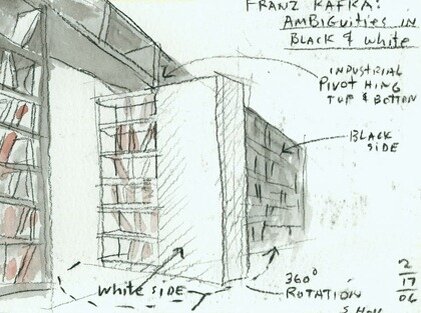 FRANZ KAFKA:
AMBIGUITIES IN
BLACK & WHITE
INDUSTRIAL
PIVOT HING
TOP & BOTTOM
BLACK
SIDE
WHITE SIDE
360°
ROTATION
2
17
06
S